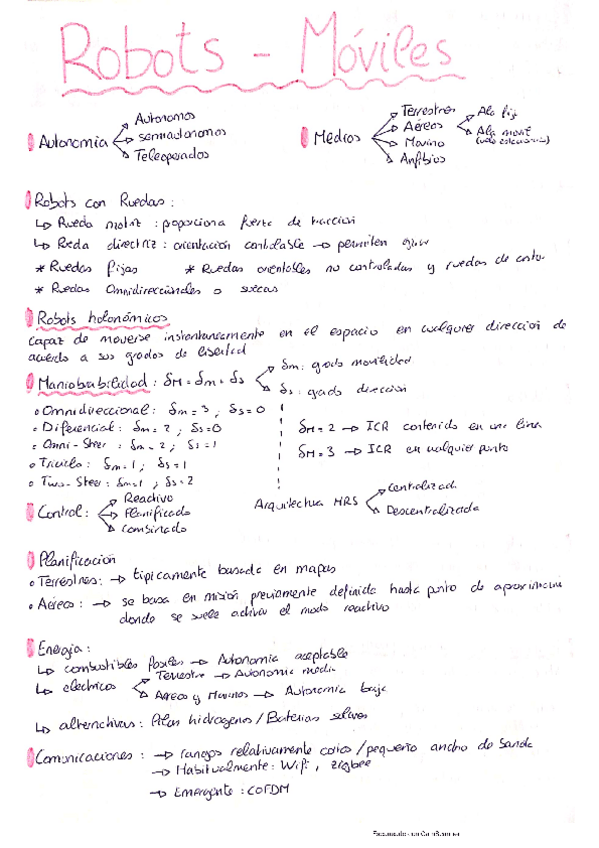 Robots - Móviles
Autonomía
Autonomos
semiautonomos
Teleoperados
Medios
Terrestres
Aéreos
Marino
Anfibios
Ala fija
Ala movil
Robots con Ruedas:
↳ Rueda motriz : proporciona fuerza de traccion
↳ Rueda directriz : orientación controlable → permiten girar
* Ruedas fijas * Ruedas orientables no controladas y ruedas de castor
* Ruedas Omnidireccionales o suecas
Robots holonómicos
Capaz de moverse instantaneamente en el espacio en cualquier direccion de
acuerdo a sus grados de libertad
Maniobrabilidad : δM = δm + δs
δm: grado movilidad
δs: grado direccion
• Omnidireccional: δm = 3 ; δs = 0
• Diferencial: δm = 2 ; δs = 0
• Omni-Steer: δm = 2 ; δs = 1
• Triciclo: δm = 1 ; δs = 1
• Two-Steer: δm = 1 ; δs = 2
δM = 2 → ICR contenido en una linea
δM = 3 → ICR en cualquier punto
Control:
Reactivo
Planificado
Combinado
Arquitectura MRS
Centralizada
Descentralizada
Planificación
• Terrestres: → tipicamente basada en mapas
• Aéreos: → se basa en misión previamente definida hasta punto de aproximacion
donde se suele activar el modo reactivo
Energia:
↳ combustibles fosiles → Autonomia aceptable
↳ electricos
Terrestre → Autonomia media
Aereos y Marinos → Autonomia baja
↳ alternativas: Pilas hidrogeno / Baterias solares
Comunicaciones : → rangos relativamente cortos / pequeño ancho de banda
→ Habitualmente: Wifi, zigbee
→ Emergente: COFDM
Escaneado con CamScanner